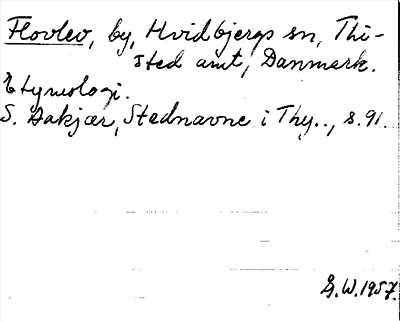 Flovlev, by, Hvidbjergs sn, Thi-
sted amt, Danmark.
Etymologi.
S. Aakjær, Stednavne i Thy.., s.91.
G.W.1957.